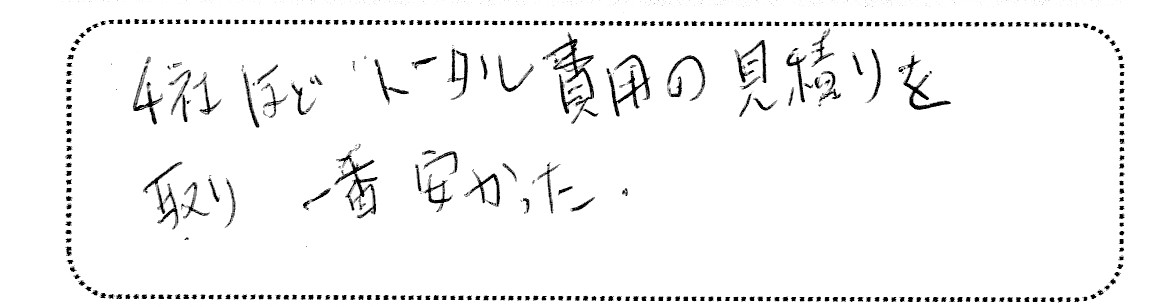 4社ほどトータル費用の見積りを
取り 一番安かった.